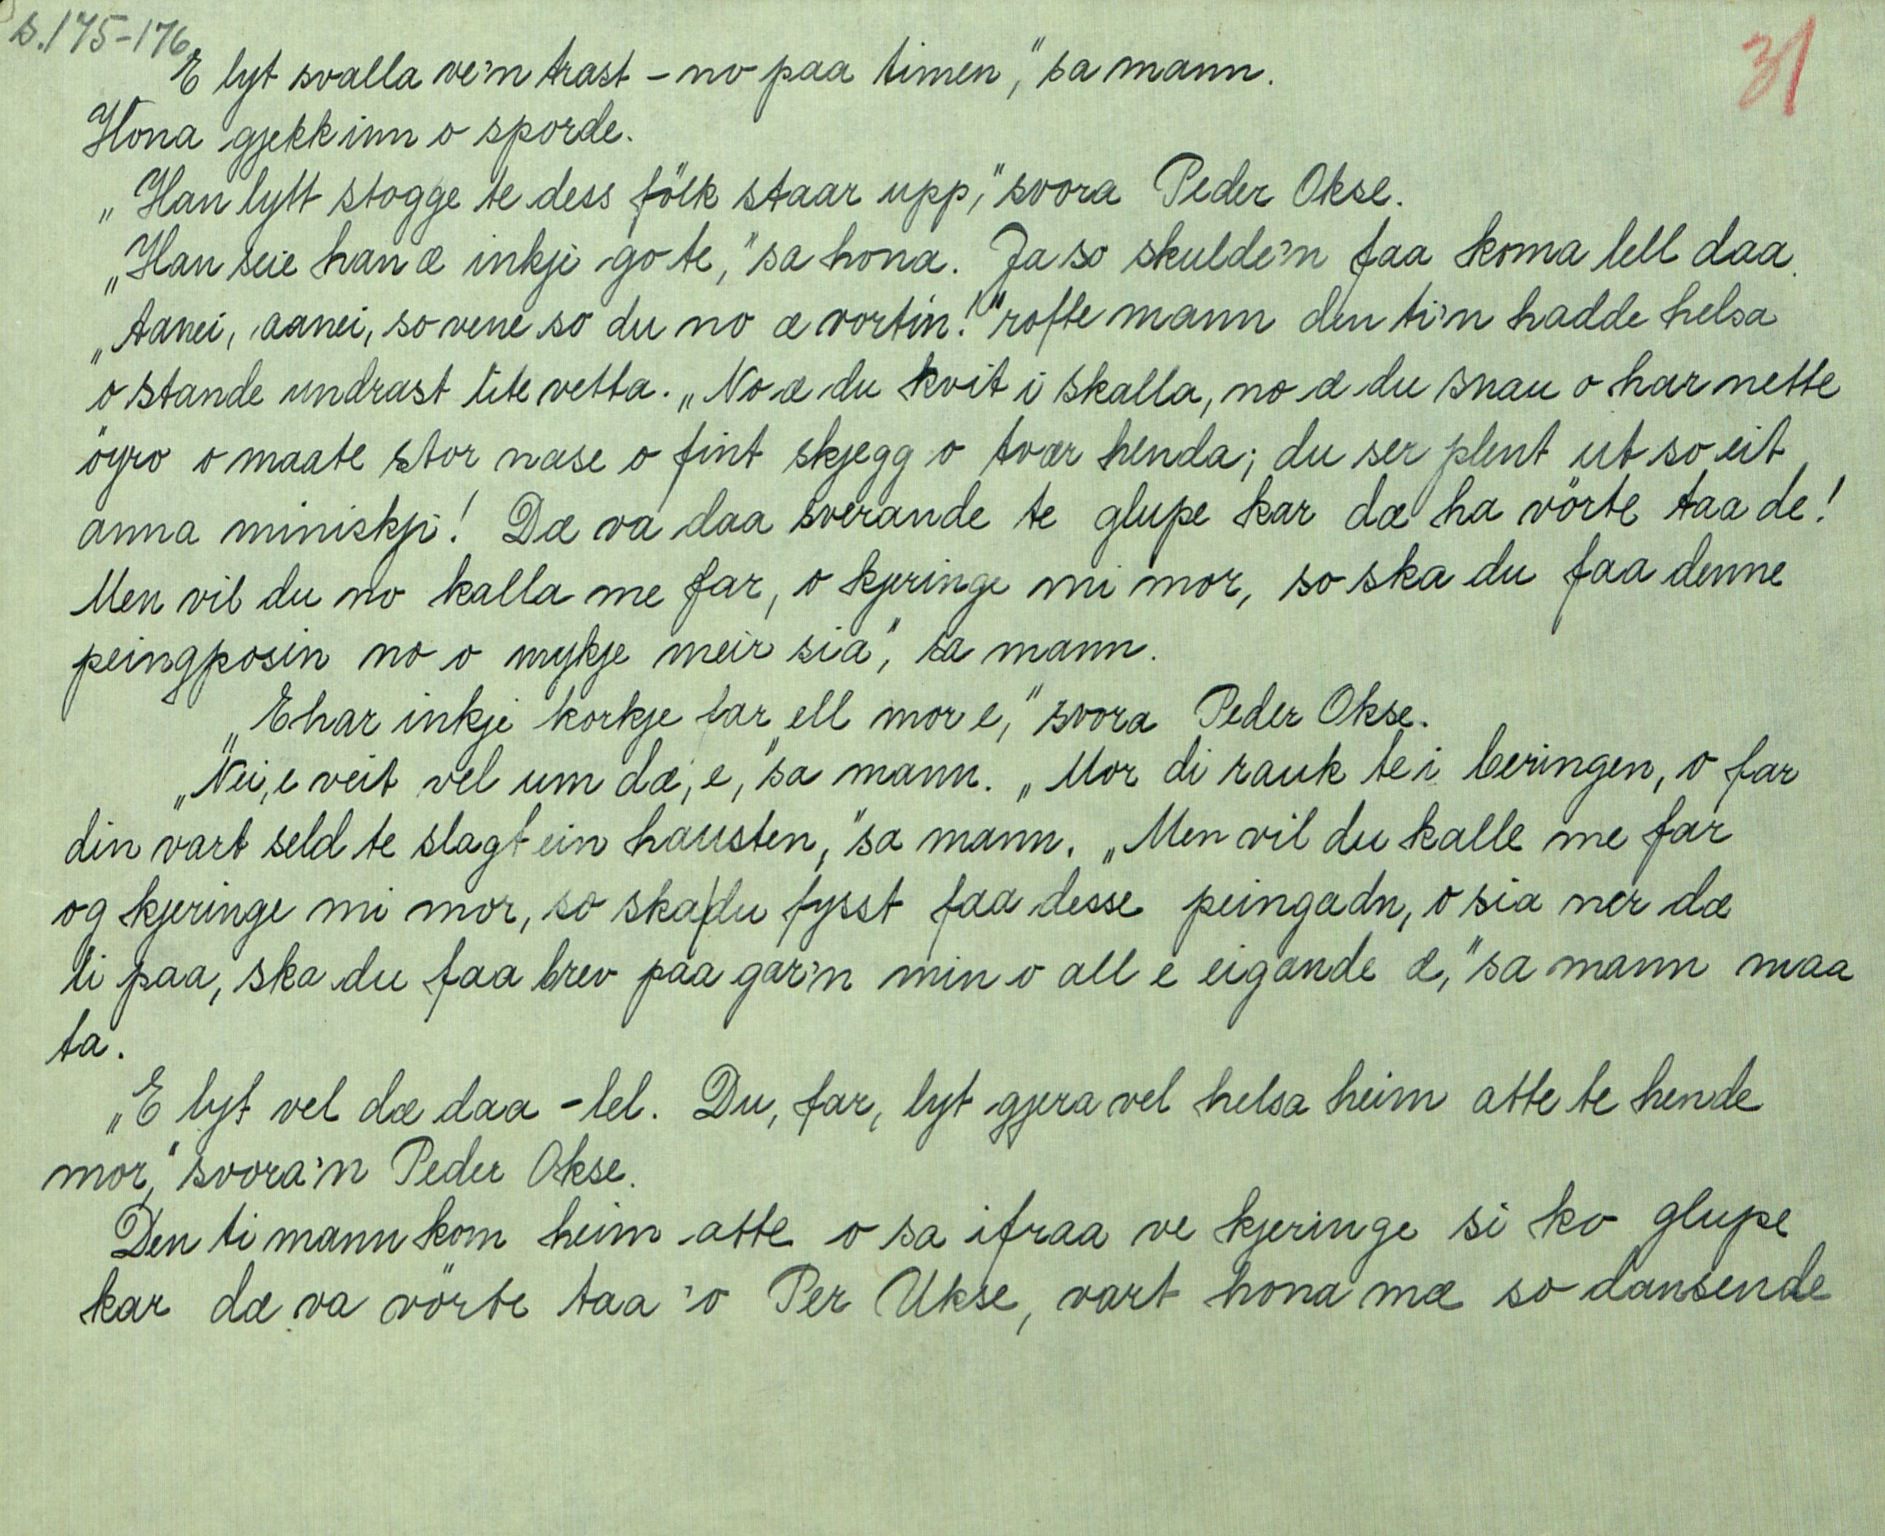 s.175-176
31
E lyt svalla ve'n trast – no paa timen," sa mann.
Hona gjekk inn o sporde.
„Han lytt stogge te dess fölk staar upp," svora Peder Okse.
„Han seie han æ inkji go te," sa hona. Ja so skulde'n faa koma lell daa.
„Aanei, aanei, so vene so du no æ vortin!" rofte mann den ti'n hadde helsa
o stande undrast lite vetta. „No æ du kvit i skalla, no æ du snau o har nette
öyro o maate stor nase o fint skjegg o tvær henda; du ser plent ut so eit
anna miniskji! Dæ va daa sverande te glupe kar dæ ha vörte taa de!
Men vil du no kalla me far, o kjeringe mi mor, so ska du faa denne
peingposin no o mykje meir sia", sa mann.
„E har inkji korkje far ell mor e," svora Peder Okse.
„Nei, e veit vel um dæ, e," sa mann. „Mor di rauk te i beringen, o far
din vart seld te slagt ein hausten," sa mann. „Men vil du kalle me far
og kjeringe mi mor, so ska du fysst faa desse peingadn, o sia ner dæ
li paa, ska du faa brev paa gar'n min o all e eigande æ," sa mann maa
ta.
„E lyt vel dæ daa – lel. Du, far, lyt gjera vel helsa heim atte te hende
mor," svora'n Peder Okse.
Den ti mann kom heim atte o sa ifraa ve kjeringe si ko glupe
kar dæ va vörte taa 'o Per Ukse, vart hona mæ so dansende